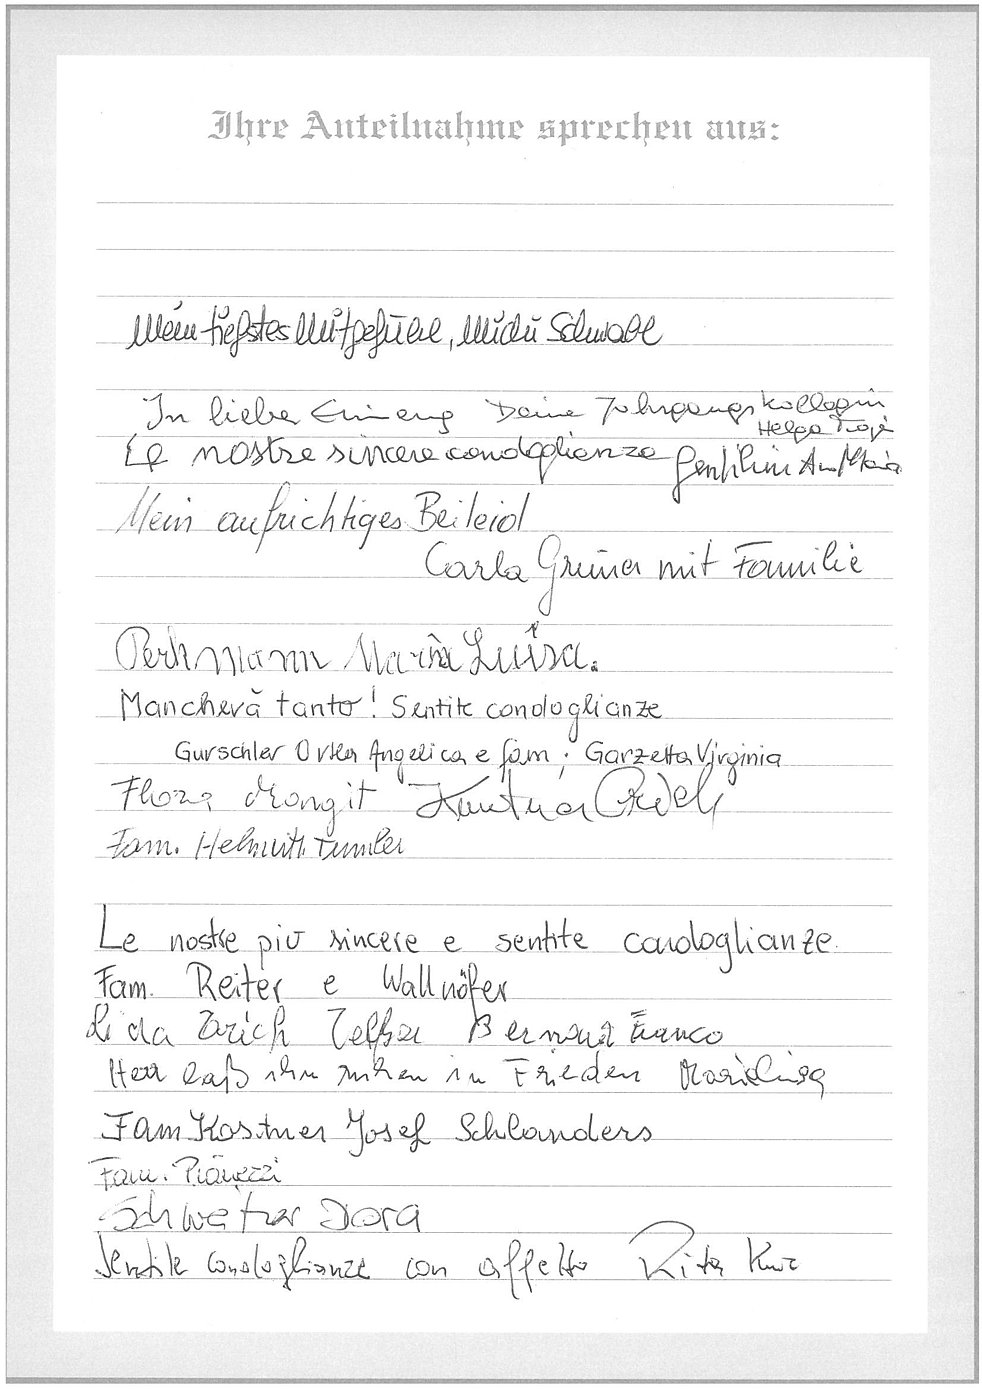 Ihre Anteilnahme sprechen aus:
Mein tiefstes Mitgefühl, Michi Schwabl
In lieber Erinnerung Deine Jahrgangskollegin
Helga
Le nostre sincere condoglianze Gentilini AnnMaria
Mein aufrichtiges Beileid
Carla Grüner mit Familie
Perkmann Maria Luisa.
Mancherà tanto! Sentite condoglianze
Gurschler Ortler Angelica e fam; Garzetta Virginia
Flora Mongit
Fam. Helmuth Tumler
Le nostre più sincere e sentite condoglianze.
Fam. Reiter e Wallnöfer
Lida Zarich Telfser Franco
Herr laß ihn ruhen in Frieden Marialuisa
Fam Kostner Josef Schlanders
Fam.
Schweitzer Dora
Sentite condoglianze con affetto Rita